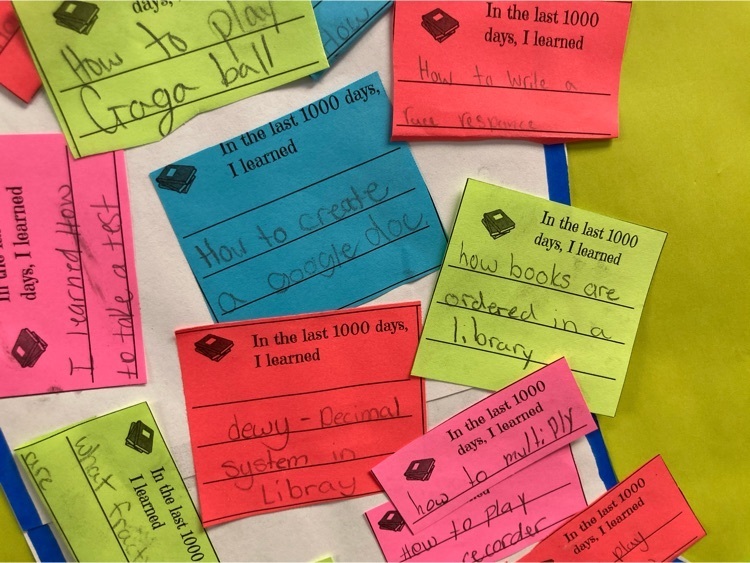 days, I learned
How to play
Gaga ball
How
In the last 1000
days, I learned
How to write a
In the last 1000 days,
I learned
How to create
a google doc.
days, I learned
I learned How
to take a test
In the last 1000
days, I learned
how books are
ordered in a
library
In the last 1000 days,
I learned
dewy-Decimal
system in
Libray
In the last 1000
days, I learned
how to multiply
how to play
recorder
what fract
are
In the last 1000
days, I learned
play